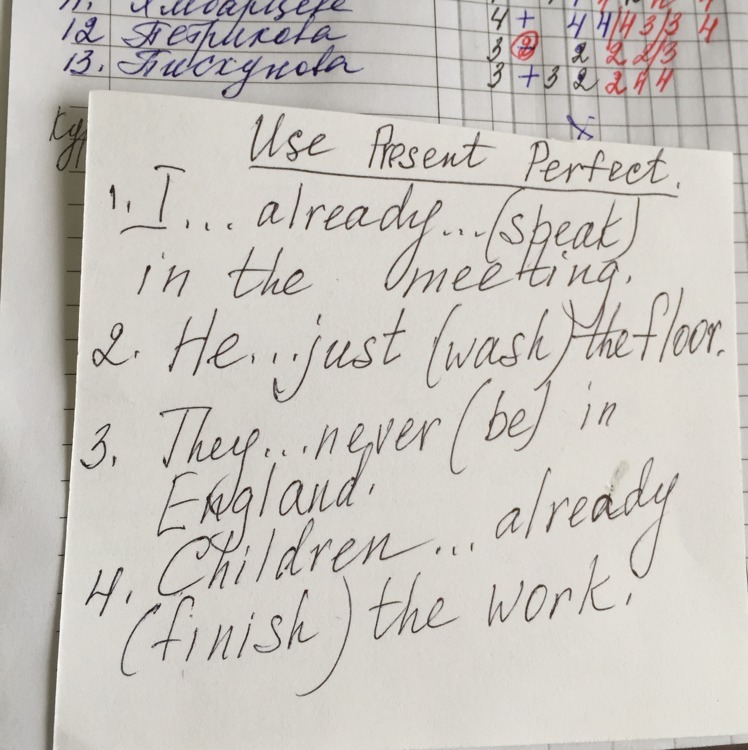 12 Петрикова
13. Пискунова
4 + 4 4 4 3 3 4
3 2 2 2 3
3 + 3 2 2 4 4
Use Present Perfect.
1. I... already...(speak)
in the meeting.
2. He...just (wash) the floor.
3. They...never (be) in
England.
4. Children... already
(finish) the work.